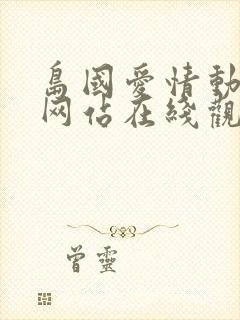 島國愛情動
网站在綫觀
曾靈